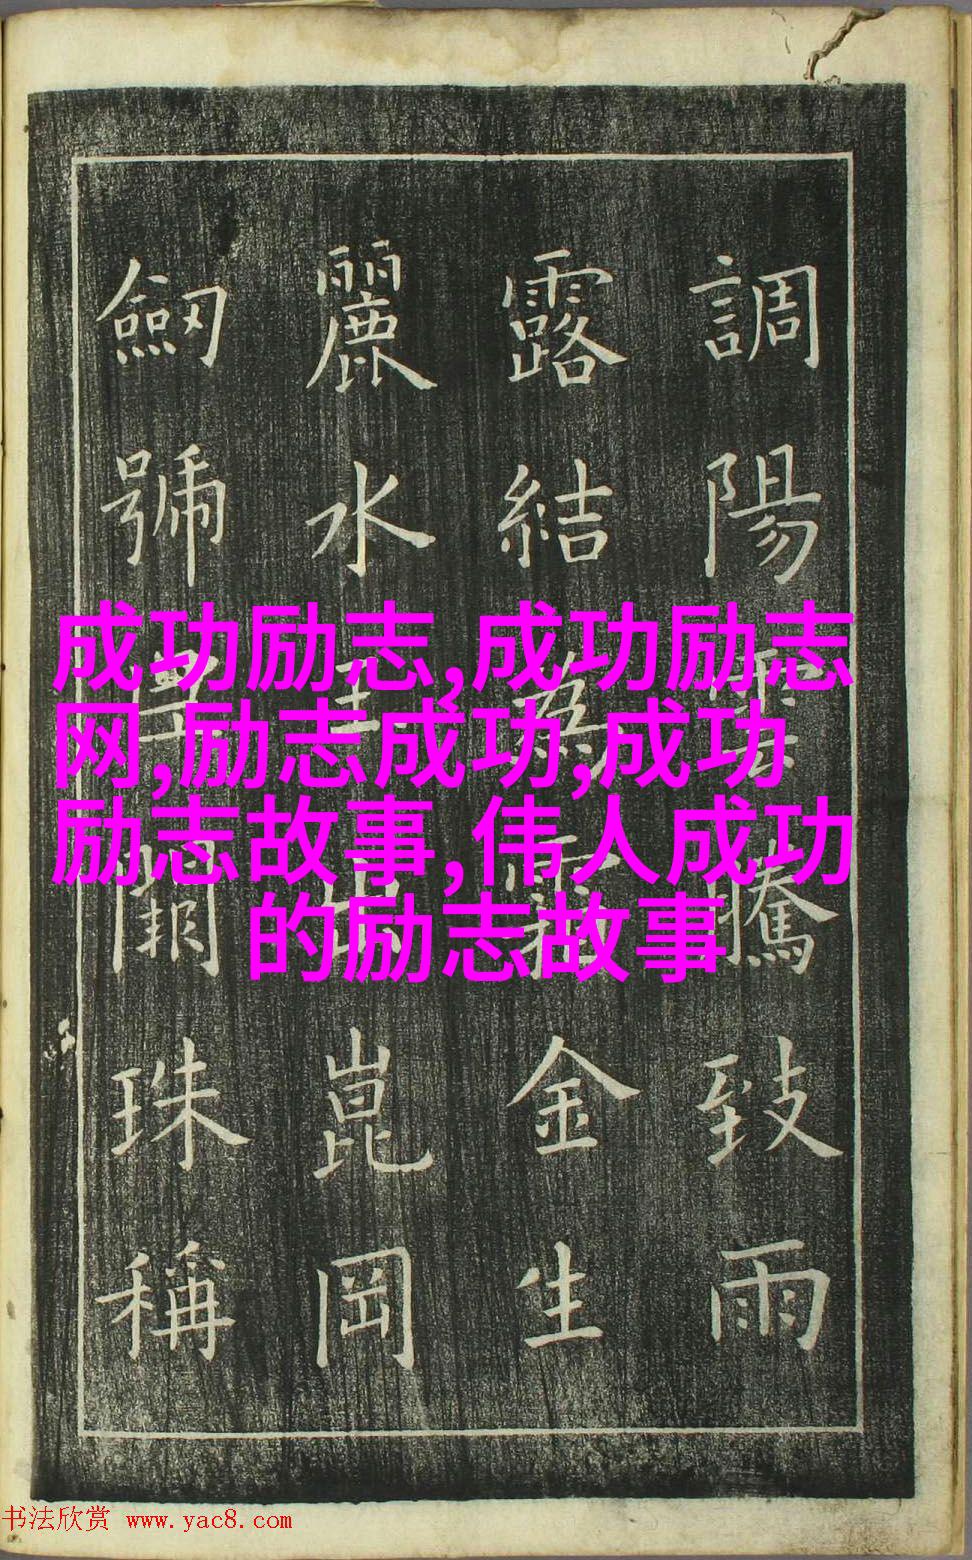 調陽雲騰致雨
露結爲霜金生
麗水玉出崑岡
劒號巨闕珠稱
成功励志,成功励志
网,励志成功,成功
励志故事,伟人成功
的励志故事
书法欣赏 www.yac8.com